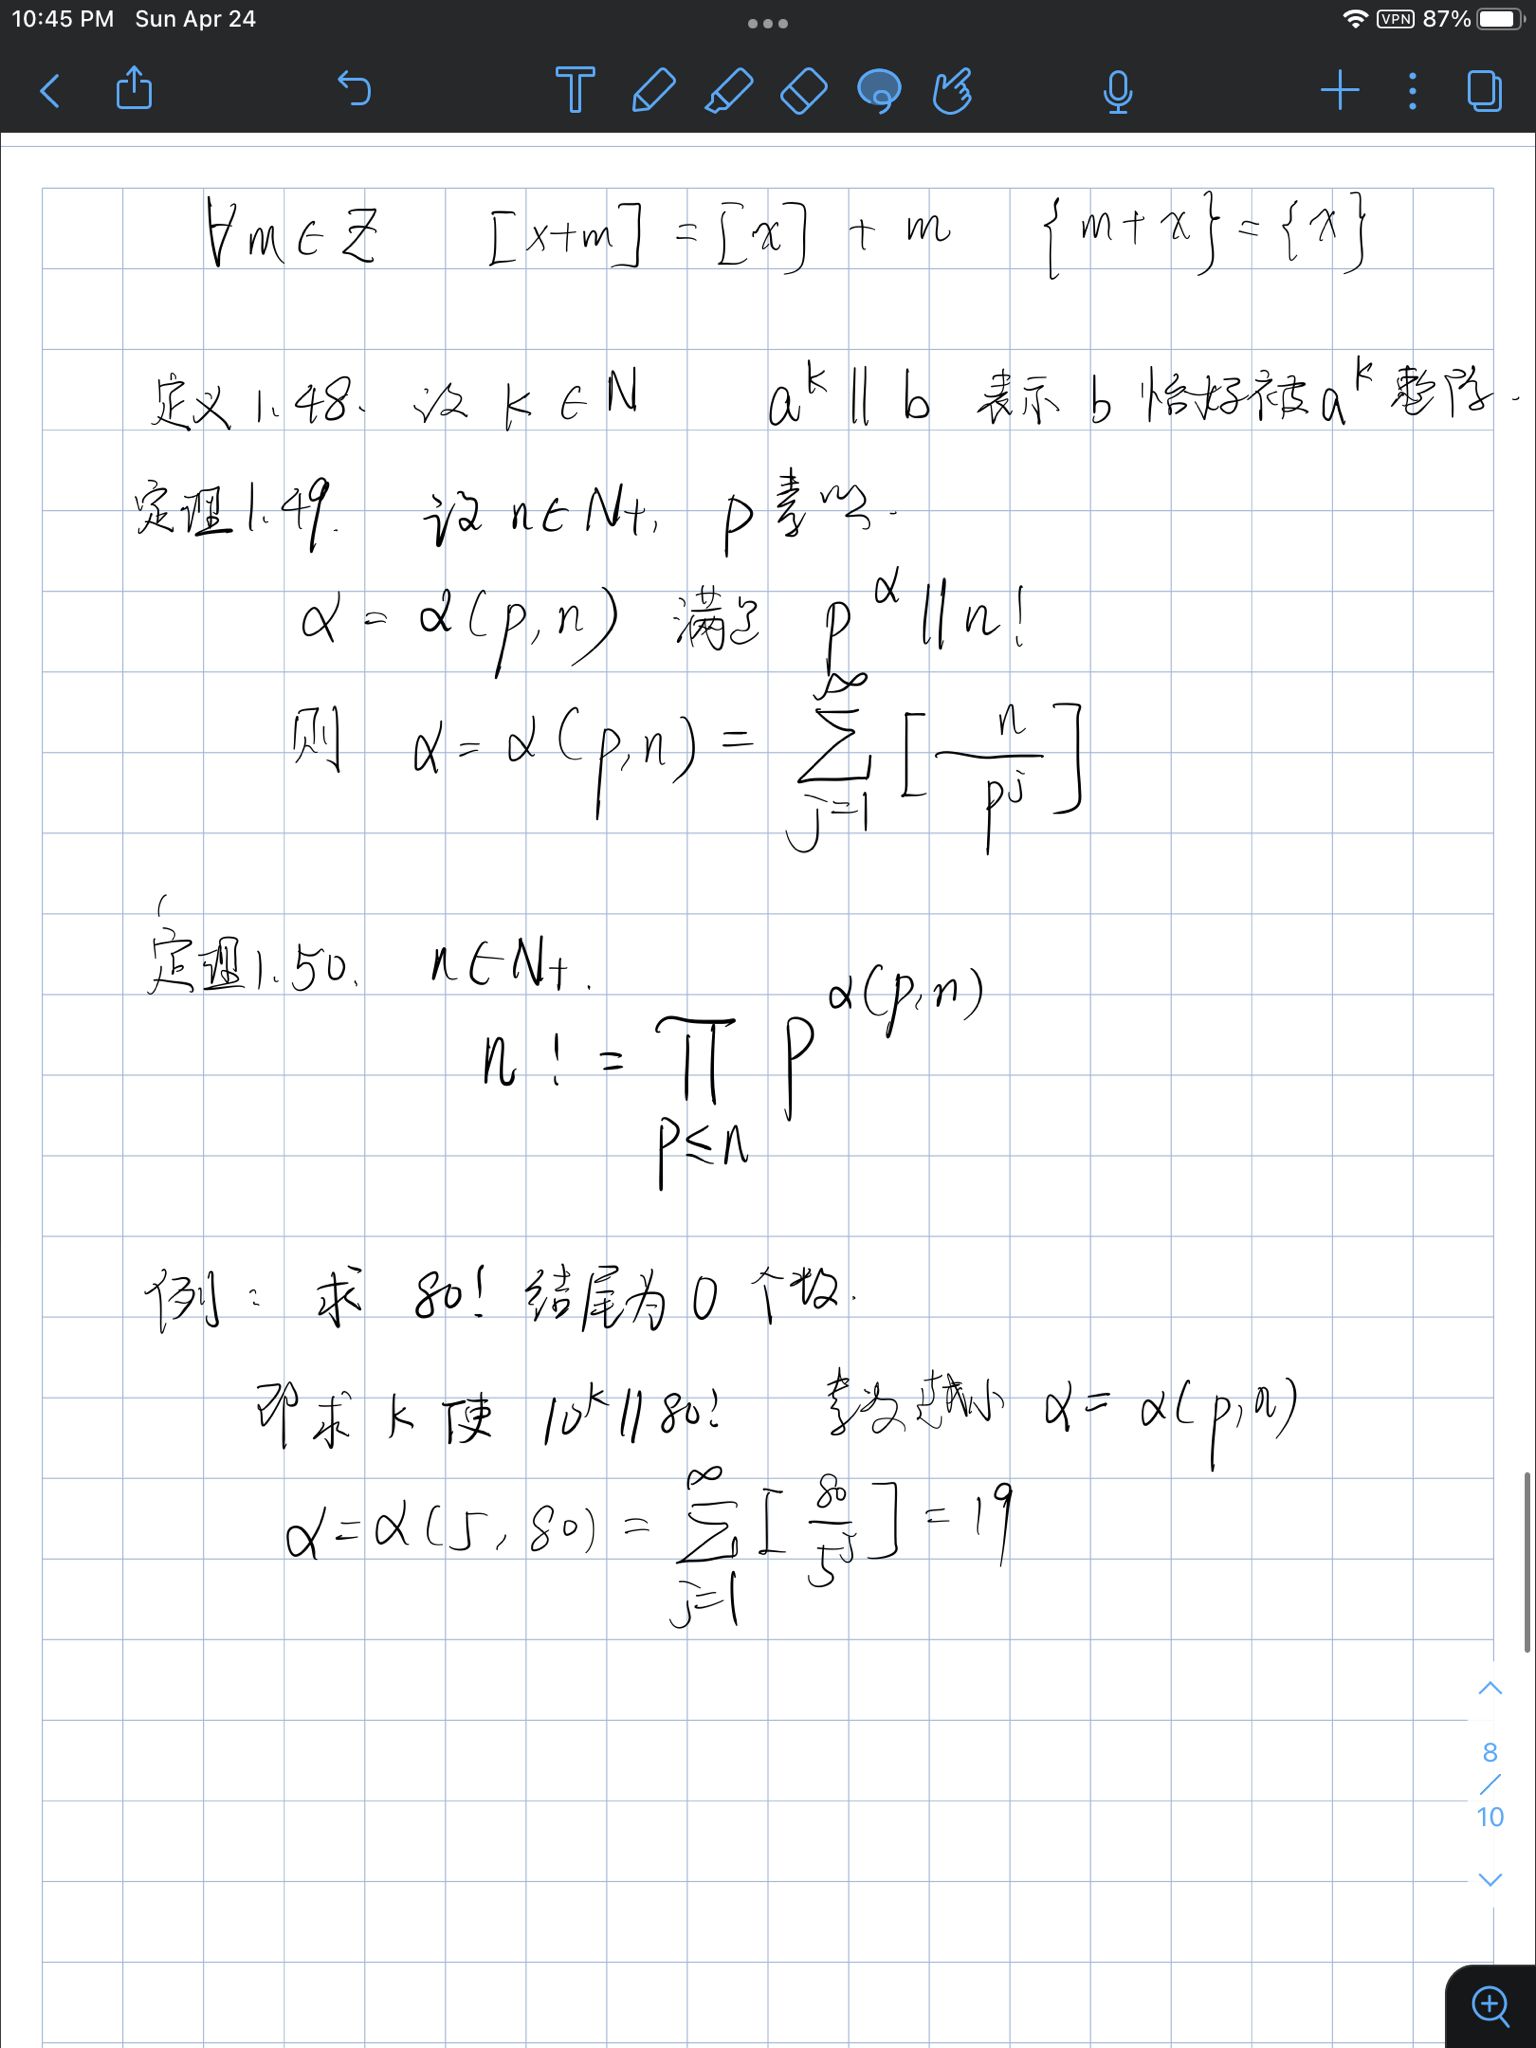 10:45 PM Sun Apr 24
VPN 87%
∀m∈Z [x+m] = [x] + m {m+x} = {x}
定义1.48. 设 k∈N a^k || b 表示 b 恰好被 a^k 整除.
定理1.49. 设 n∈N+, p素数.
α = α(p,n) 满足 p^α || n!
则 α = α(p,n) = ∑_{j=1}^{∞} [n/p^j]
定理1.50. n∈N+.
n! = ∏_{p≤n} p^{α(p,n)}
例: 求 80! 结尾为 0 个数.
即求 k 使 10^k || 80! 素数越小 α = α(p,n)
α = α(5, 80) = ∑_{j=1}^{∞} [80/5^j] = 19
8
/
10